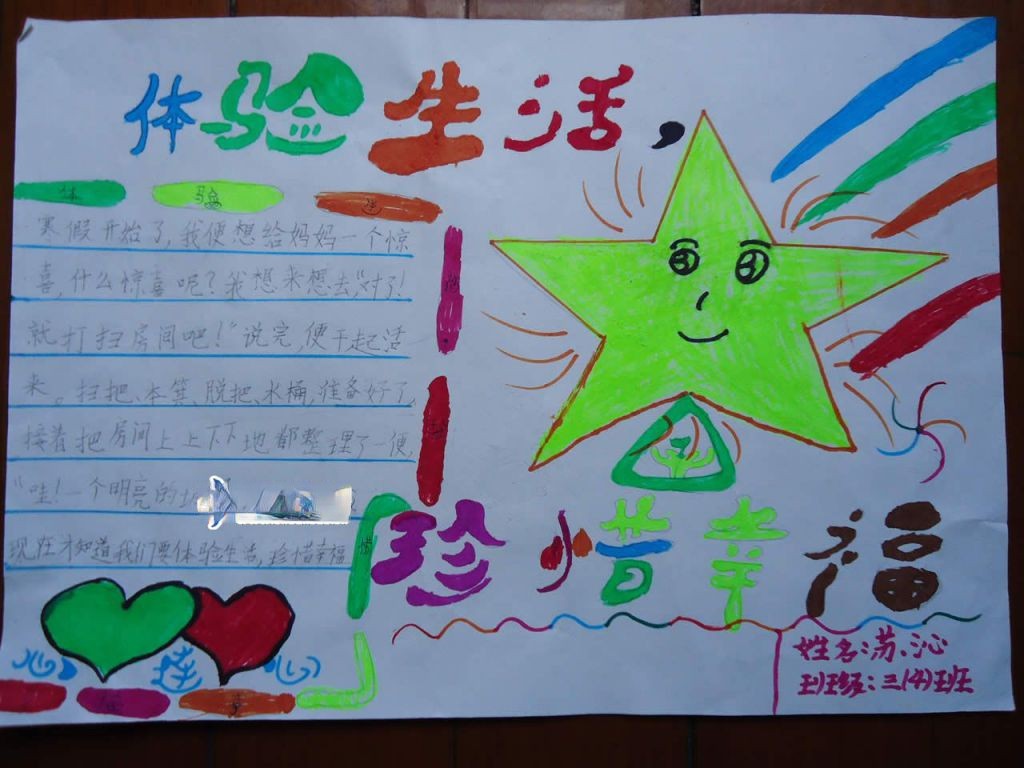 体验生活，
体 验 生
寒假开始了,我便想给妈妈一个惊
喜,什么惊喜呢?我想来想去,“对了!
就打扫房间吧!”说完,便干起活
来。扫把、本箕、脱把、水桶,准备好了,
接着把房间上上下下地都整理了一便,
“哇!一个明亮的
现在才知道我们要体验生活,珍惜幸福
惜
珍惜幸福
心连心
幸
姓名:苏沁
班级:三(4)班